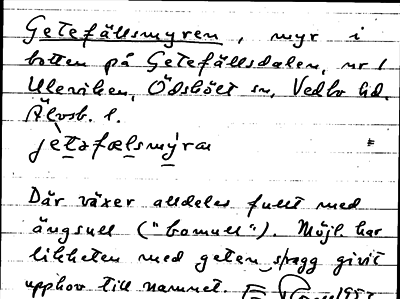 Getefällsmyren, myr i
botten på Getefällsdalen, nr 1
Uleviken, Ödskölt sn, Vedbo hd.
Älvsb. l.
jetəfælsmýrar
Där växer alldeles fullt med
ängsull ("bomull"). Möjl. har
likheten med getens ragg givit
upphov till namnet.